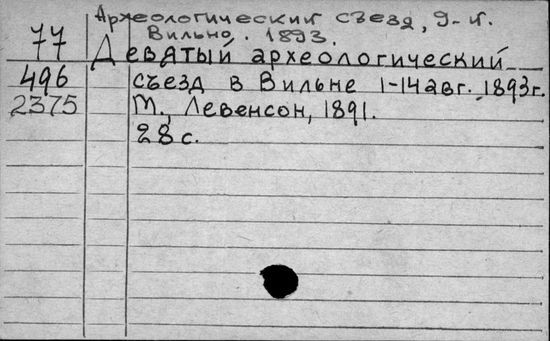 Археологический съезд, 9-й.
Вильно. 1893.
77 Девятый археологический
496 съезд в Вильне 1-14 авг. 1893г.
2375 М., Левенсон, 1891.
28 с.